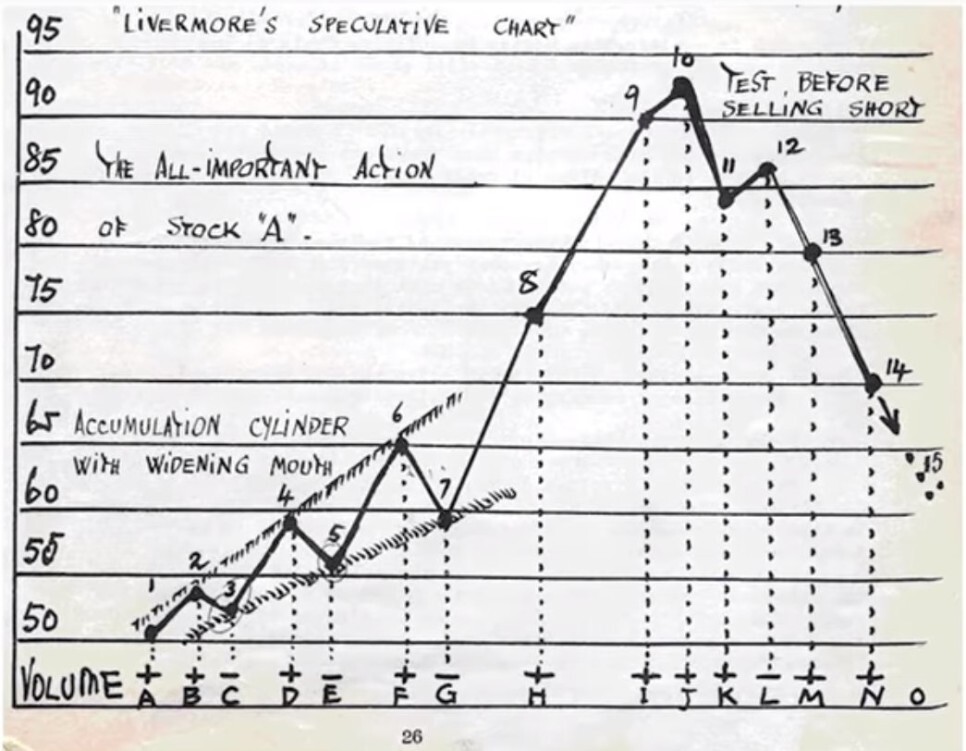 "LIVERMORE'S SPECULATIVE CHART"
95
10
TEST, BEFORE
90
9
SELLING SHORT
12
85
THE ALL-IMPORTANT ACTION
11
80
OF STOCK "A".
13
75
8
70
14
6
65
ACCUMULATION CYLINDER
WITH WIDENING MOUTH
15
60
4
7
55
5
2
1
3
50
+ + - + - + - + + + + - + +
VOLUME A B C D E F G H I J K L M N O
26